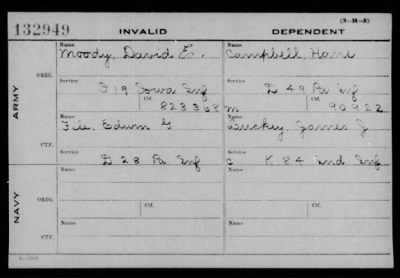 (3-11-5)
132949 INVALID DEPENDENT
Name Name
Moody, David E. Campbell,
ORIG.
Service Service
F 19 Iowa Inf D 49 Pa Inf
Ctf. Ctf.
823368 m 90922
ARMY
Name Name
File, Edwin G Duckey, James J
CTF.
Service Service
D 28 Pa Inf c K 84 Ind Inf
Name Name
ORIG.
Ctf. Ctf.
NAVY
Name Name
CTF.